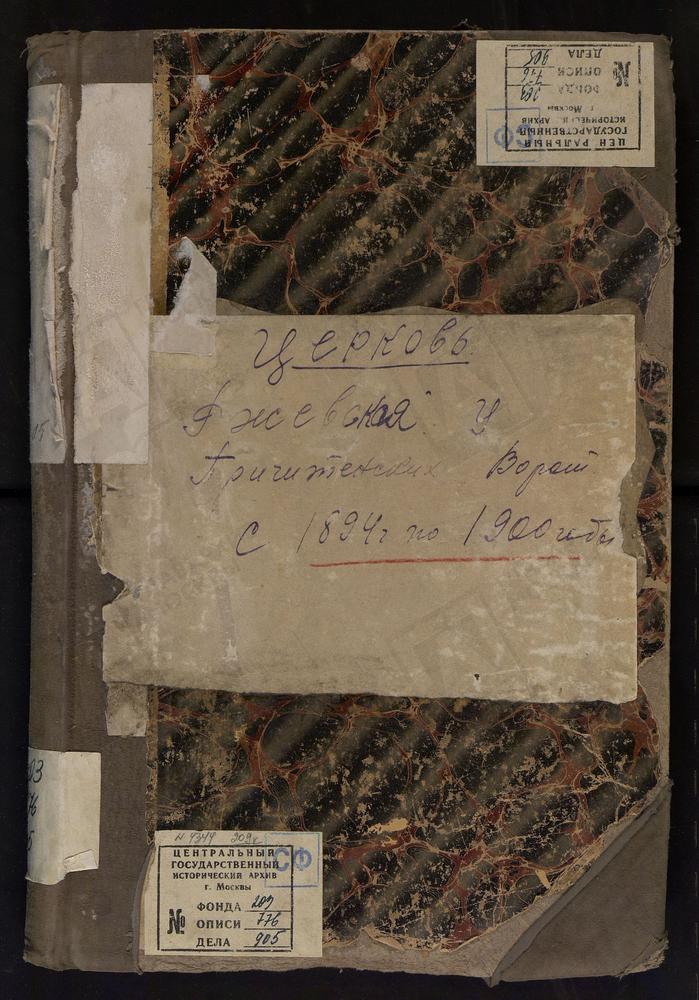 ЦЕНТРАЛЬНЫЙ
ГОСУДАРСТВЕННЫЙ
ИСТОРИЧЕСКИЙ АРХИВ
г. Москвы
ФОНДА 203
№ ОПИСИ 776
ДЕЛА 905
СФ
Церковь
Ржевская у
Пречистенских Ворот
с 1894г по 1900 годы
03
76
5
N 4344
СФ
ЦЕНТРАЛЬНЫЙ
ГОСУДАРСТВЕННЫЙ
ИСТОРИЧЕСКИЙ АРХИВ
г. Москвы
ФОНДА 203
№ ОПИСИ 776
ДЕЛА 905